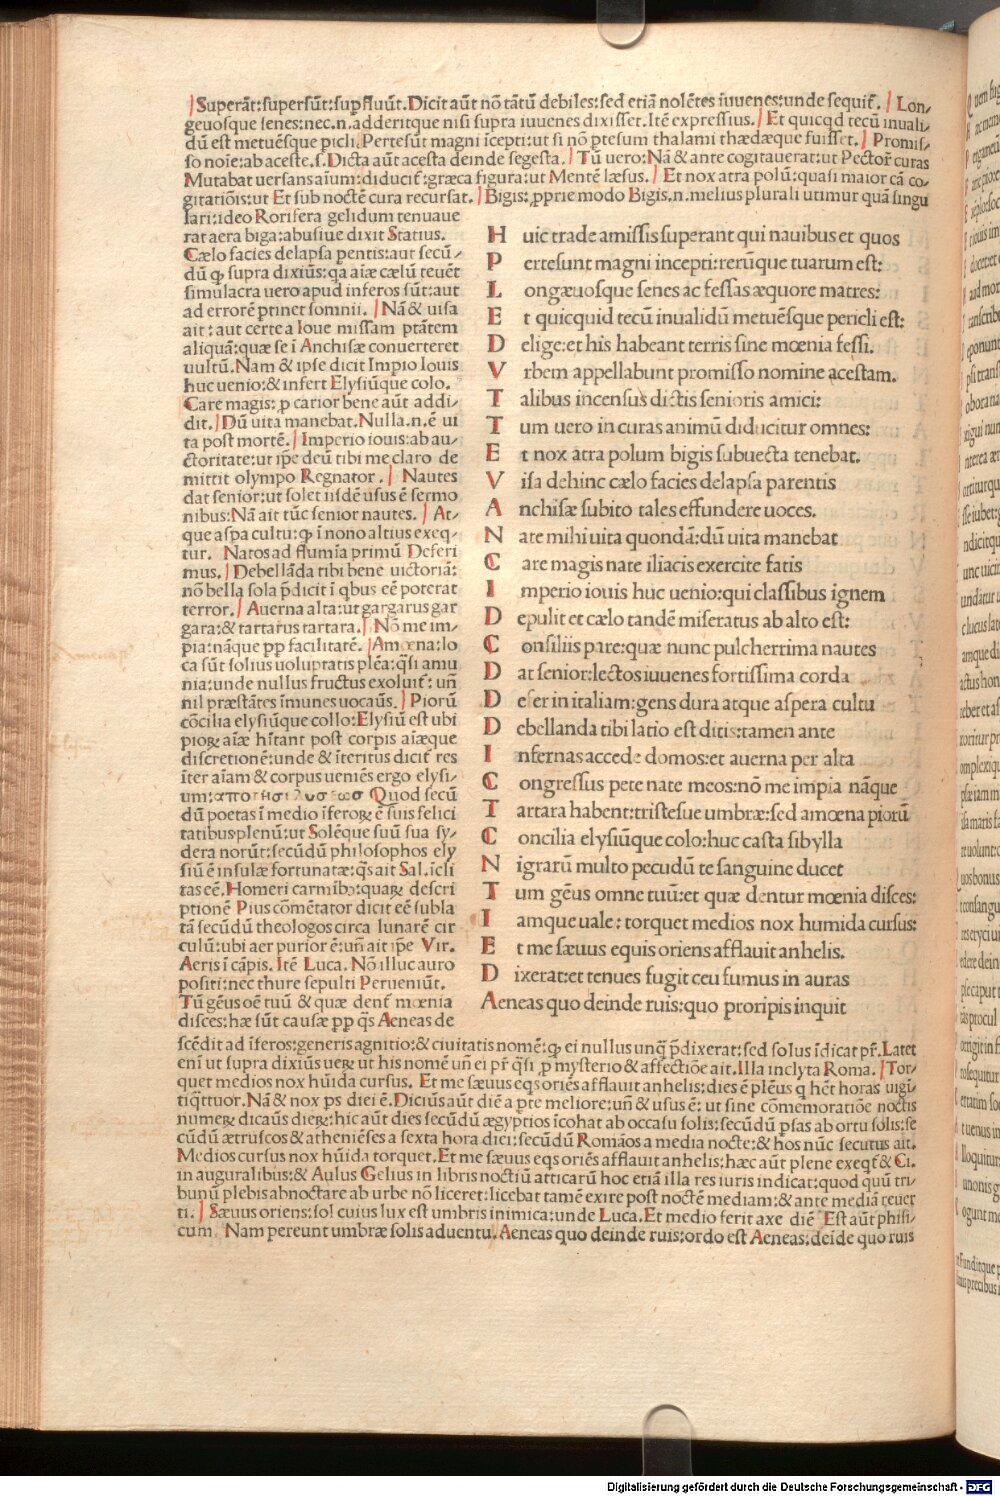 Superāt:supersūt:supfluūt.Dicit aūt nō tātū debiles:sed etiā nolētes iuuenes:unde sequit̄. Lon,
geuosque senes:nec.n.adderitque nisi supra iuuenes dixisset.Itē expressius. Et quicqd tecū inuali,
dū est metuēsque picli.Pertesūt magni īcepti:ut si nō ptesum thalami thædæque fuisset. Promis,
so noīe:ab aceste.s.Dicta aūt acesta deinde segesta. Tū uero:Nā & ante cogitauerat:ut Pector̄ curas
Mutabat uersans aīum:diducit̄:græca figura:ut Mentē læsus. Et nox atra polū:quasi maior cā co,
gitatiōis:ut Et sub noctē cura recursat. Bigis:pprie modo Bigis.n.melius plurali utimur quā singu
lari:ideo Rorifera gelidum tenuaue
rat aera biga:abusiue dixit Statius.
Cælo facies delapsa pentis:aut secū,
dū ꝙ supra dixiūs:qa aiæ cælū teuēt
simulacra uero apud inferos sūt:aut
ad errorē ptinet somnii. Nā & uisa
ait:aut certe a Ioue missam ptātem
aliquā:quæ se ī Anchisæ conuerteret
uultū.Nam & ipse dicit Impio louis
huc uenio:& infert Elysiūque colo.
Care magis:p carior bene aūt addi,
dit. Dū uita manebat.Nulla.n.ē ui
ta post mortē. Imperio iouis:ab au,
ctoritate:ut ip̄e deū tibi me claro de
mittit olympo Regnator. Nautes
dat senior:ut solet iisdē usus ē sermo
nibus:Nā ait tūc senior nautes. At,
que aspa cultu:ꝙ ī nono altius exeq,
tur. Natos ad flumīa primū Deferi
mus. Debellāda tibi bene uictoriā:
nō bella sola p̄dicit ī qbus eē poterat
terror. Auerna alta:ut gargarus gar
gara:& tartarus tartara. Nō me im,
pia:nāque pp facilitatē. Amœna:lo
ca sūt solius uoluptatis plēa:q̄si amu
nia:unde nullus fructus exoluit̄: un̄
nil præstātes īmunes uocaūs. Piorū
cōcilia elysiūque collo:Elysiū est ubi
pioꝝ aiæ hītant post corpis aiæque
discretionē:unde & īteritus dicit̄ res
īter aīam & corpus ueniēs ergo elysi,
Quod secū
dū poetas ī medio īferoꝝ ē suis felici
tatibus plenū:ut Solēque suū sua sy,
dera norūt:secūdū philosophos ely
siū ē insulæ fortunatæ:q̄s ait Sal.īcli
tas eē.Homeri carmibꝰ:quaꝝ descri
ptionē Pius cōmētator dicit eē subla
tā secūdū theologos circa lunarē cir
culū:ubi aer purior ē:un̄ ait ip̄e Vir.
Aeris ī cāpis. Itē Luca. Nō illuc auro
positi:nec thure sepulti Perueniūt.
Tū gēus oē tuū & quæ dent̄ mœnia
disces:hæ sūt causæ pp q̄s Aeneas de
Huic trade amissis superant qui nauibus et quos
Pertesunt magni incepti:rerūque tuarum est:
Longæuosque senes ac fessas æquore matres:
Et quicquid tecū inualidū metuēsque pericli est:
Delige:et his habeant terris sine mœnia fessi.
Vrbem appellabunt promisso nomine acestam.
Talibus incensus dictis senioris amici:
Tum uero in curas animū diducitur omnes:
Et nox atra polum bigis subuecta tenebat.
Visa dehinc cælo facies delapsa parentis
Anchisæ subito tales effundere uoces.
Nate mihi uita quondā:dū uita manebat
Care magis nate iliacis exercite fatis
Imperio iouis huc uenio:qui classibus ignem
Depulit et cælo tandē miseratus ab alto est:
Consiliis pare:quæ nunc pulcherrima nautes
Dat senior:lectos iuuenes fortissima corda
Defer in italiam:gens dura atque aspera cultu
Debellanda tibi latio est ditis:tamen ante
Infernas accede domos:et auerna per alta
Congressus pete nate meos:nō me impia nāque
Tartara habent:tristesue umbræ:sed amœna piorū
Concilia elysiūque colo:huc casta sibylla
Nigrarū multo pecudū te sanguine ducet
Tum gēus omne tuū:et quæ dentur mœnia disces:
Iamque uale: torquet medios nox humida cursus:
Et me sæuus equis oriens afflauit anhelis.
Dixerat:et tenues fugit ceu fumus in auras
Aeneas quo deinde ruis:quo proripis inquit
scēdit ad īferos:generis agnitio:& ciuitatis nomē:ꝙ ei nullus unq̄ p̄dixerat:sed solus īdicat pr̄.Latet
eni ut supra dixiūs ueꝝ ut his nomē un̄ ei pr̄ q̄si p mysterio & affectiōe ait.Illa inclyta Roma. Tor,
quet medios nox hūida cursus. Et me sæuus eqs oriēs afflauit anhelis:dies ē plēus q het̄ horas uigī
tiq̄ttuor.Nā & nox ps diei ē.Dicius aūt diē a pte meliore:un̄ & usus ē: ut sine cōmemoratiōe noctis
numeꝝ dicaūs dieꝝ:hic aūt dies secūdū ægyptios īcohat ab occasu solis:secūdū psas ab ortu solis:se
cūdū ætruscos & atheniēses a sexta hora diei:secūdū Romāos a media nocte:& hos nūc secutus ait.
Medios cursus nox hūida torquet.Et me sæuus eqs oriēs afflauit anhelis:hæc aūt plene exeqt̄ & Ci.
in auguralibus:& Aulus Gelius in libris noctiū atticarū hoc etiā illa res iuris indicat:quod quū tri,
bunū plebis abnoctare ab urbe nō liceret:licebat tamē exire post noctē mediam:& ante mediā reuer
ti. Sæuus oriens:sol cuius lux est umbris inimica:unde Luca.Et medio ferit axe diē Est aūt phisi,
cum Nam pereunt umbræ solis aduentu.Aeneas quo deinde ruis:ordo est Aeneas:deīde quo ruis
Digitalisierung gefördert durch die Deutsche Forschungsgemeinschaft - DFG